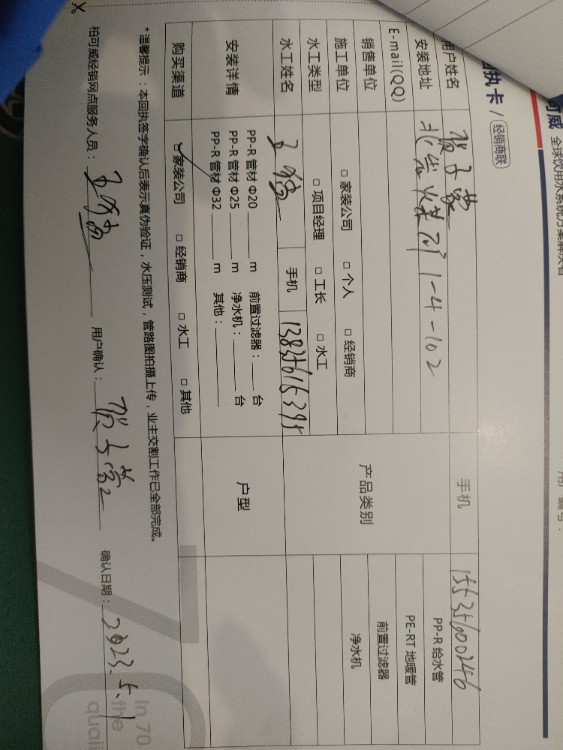 可威 全球饮用水系统方案解决者
回执卡 / 经销商联
用户编号：
用户姓名
手机 15535600256
安装地址 1-4-102
E-mail(QQ)
销售单位
施工单位 □ 家装公司 □ 个人 □ 经销商
水工类型 □ 项目经理 □ 工长 □ 水工
水工姓名 手机 13835615395
产品类别
PP-R 给水管
PE-RT 地暖管
前置过滤器
净水机
安装详情
PP-R 管材 Φ20 m 前置过滤器： 台
PP-R 管材 Φ25 m 净水机： 台
PP-R 管材 Φ32 m 其他：
户型
购买渠道 家装公司 □ 经销商 □ 水工 □ 其他
*温馨提示：本回执签字确认后表示真伪验证，水压测试，管路图拍摄上传，业主交割工作已全部完成。
柏可威经销网点服务人员：
用户确认：
确认日期：2023.5.1
In 70
the
quali